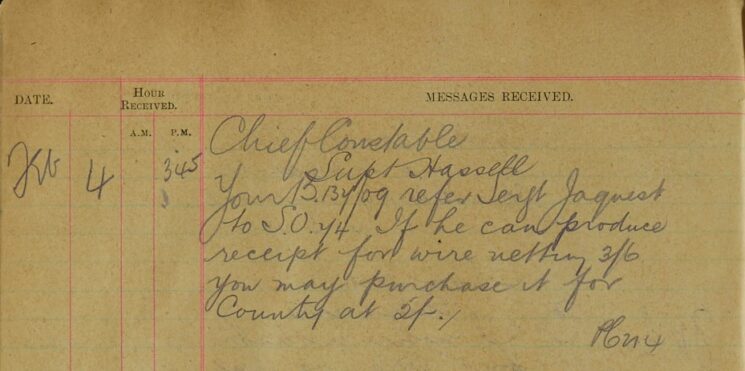 DATE. HOUR RECEIVED. MESSAGES RECEIVED.
A.M. P.M.
Feb 4 345 Chief Constable
Supt Hassell
Your refer Sergt Jaquest
to S.O. 74 If he can produce
receipt for wire netting 3/6
you may purchase it for
County at 2/-